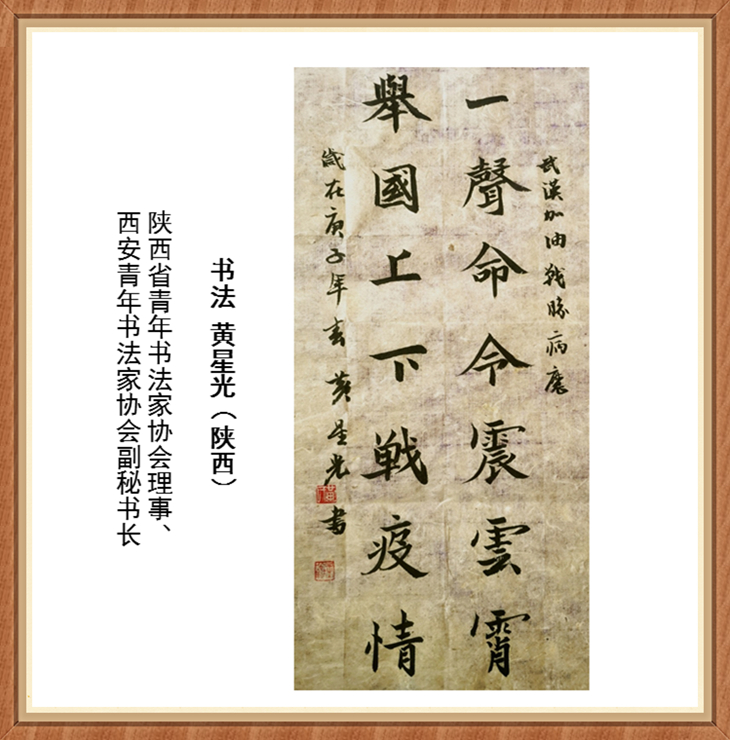 武漢加油戰勝病魔
一聲命令震雲霄
舉國上下戦疫情
歲在庚子年春黃星光書
书法 黄星光（陕西）
陕西省青年书法家协会理事、
西安青年书法家协会副秘书长